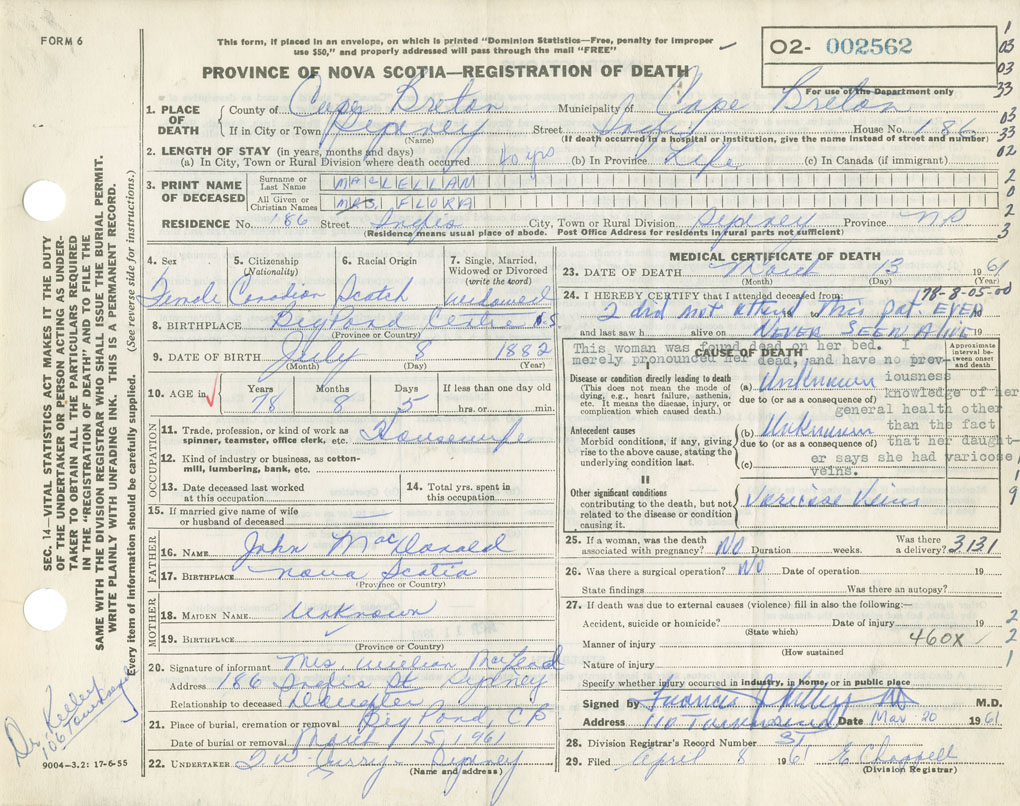 FORM 6
This form, if placed in an envelope, on which is printed "Dominion Statistics—Free, penalty for improper
use $50," and properly addressed will pass through the mail "FREE"
O2- 002562
For use of the Department only
PROVINCE OF NOVA SCOTIA—REGISTRATION OF DEATH
1
03
03
33
03
33
02
2
0
2
3
1. PLACE OF DEATH
County of Cape Breton Municipality of Cape Breton
If in City or Town Sydney Street Inglis House No. 186
(Name) (If death occurred in a hospital or institution, give the name instead of street and number)
2. LENGTH OF STAY (in years, months and days)
(a) In City, Town or Rural Division where death occurred 40 yrs (b) In Province Life (c) In Canada (if immigrant)
3. PRINT NAME OF DECEASED
Surname or Last Name MACLELLAN
All Given or Christian Names MRS. FLORA
RESIDENCE No. 186 Street Inglis City, Town or Rural Division Sydney Province NS
(Residence means usual place of abode. Post Office Address for residents in rural parts not sufficient)
4. Sex
Female
5. Citizenship (Nationality)
Canadian
6. Racial Origin
Scotch
7. Single, Married, Widowed or Divorced (write the word)
Widowed
8. BIRTHPLACE Big Pond Centre N.S
(Province or Country)
9. DATE OF BIRTH July 8 1882
(Month) (Day) (Year)
10. AGE in
Years 78
Months 8
Days 5
If less than one day old
hrs. or min.
OCCUPATION
11. Trade, profession, or kind of work as
spinner, teamster, office clerk, etc. Housewife
12. Kind of industry or business, as cotton-
mill, lumbering, bank, etc.
13. Date deceased last worked
at this occupation
14. Total yrs. spent in
this occupation
15. If married give name of wife
or husband of deceased —
FATHER
16. NAME John MacDonald
17. BIRTHPLACE Nova Scotia
(Province or Country)
MOTHER
18. MAIDEN NAME Unknown
19. BIRTHPLACE
(Province or Country)
20. Signature of informant Mrs. William MacLeod
Address 186 Inglis St Sydney
Relationship to deceased Daughter
21. Place of burial, cremation or removal Big Pond, CB
Date of burial or removal March 15, 1961
22. UNDERTAKER T W Curry Sydney
(Name and address)
MEDICAL CERTIFICATE OF DEATH
23. DATE OF DEATH March 13 1961
(Month) (Day) (Year)
24. I HEREBY CERTIFY that I attended deceased from:
78-8-05-00
I did not attend this pat. EVER
and last saw h alive on NEVER SEEN ALIVE 19
This woman was found dead on her bed. I
merely pronounced her dead, and have no prev-
iousness
knowledge of her
general health other
than the fact
that her daught-
er says she had varicose
veins.
CAUSE OF DEATH
Approximate interval between onset and death
I
Disease or condition directly leading to death
(This does not mean the mode of
dying, e.g., heart failure, asthenia,
etc. It means the disease, injury, or
complication which caused death.)
(a) Unknown
due to (or as a consequence of)
Antecedent causes
Morbid conditions, if any, giving
rise to the above cause, stating the
underlying condition last.
(b) Unknown
due to (or as a consequence of)
(c)
II
Other significant conditions
contributing to the death, but not
related to the disease or condition
causing it.
Varicose Veins
1
9
25. If a woman, was the death
associated with pregnancy? No Duration weeks. Was there
a delivery? 3131
26. Was there a surgical operation? No Date of operation 19
State findings Was there an autopsy?
27. If death was due to external causes (violence) fill in also the following:—
Accident, suicide or homicide? Date of injury 19
(State which)
Manner of injury 460X
(How sustained
Nature of injury
2
2
1
Specify whether injury occurred in industry, in home, or in public place
Signed by Francis J Kelley M.D.
Address 110 Townsend Date Mar 20 1961
28. Division Registrar's Record Number 31
29. Filed April 8 1961 E Chappell
(Division Registrar)
SEC. 14—VITAL STATISTICS ACT MAKES IT THE DUTY
OF THE UNDERTAKER OR PERSON ACTING AS UNDER-
TAKER TO OBTAIN ALL THE PARTICULARS REQUIRED
IN THE "REGISTRATION OF DEATH" AND TO FILE THE
SAME WITH THE DIVISION REGISTRAR WHO SHALL ISSUE THE BURIAL PERMIT.
WRITE PLAINLY WITH UNFADING INK. THIS IS A PERMANENT RECORD.
Every item of information should be carefully supplied. (See reverse side for instructions.)
Dr. Kelley
106 Townsend
9004-3.2: 17-6-55